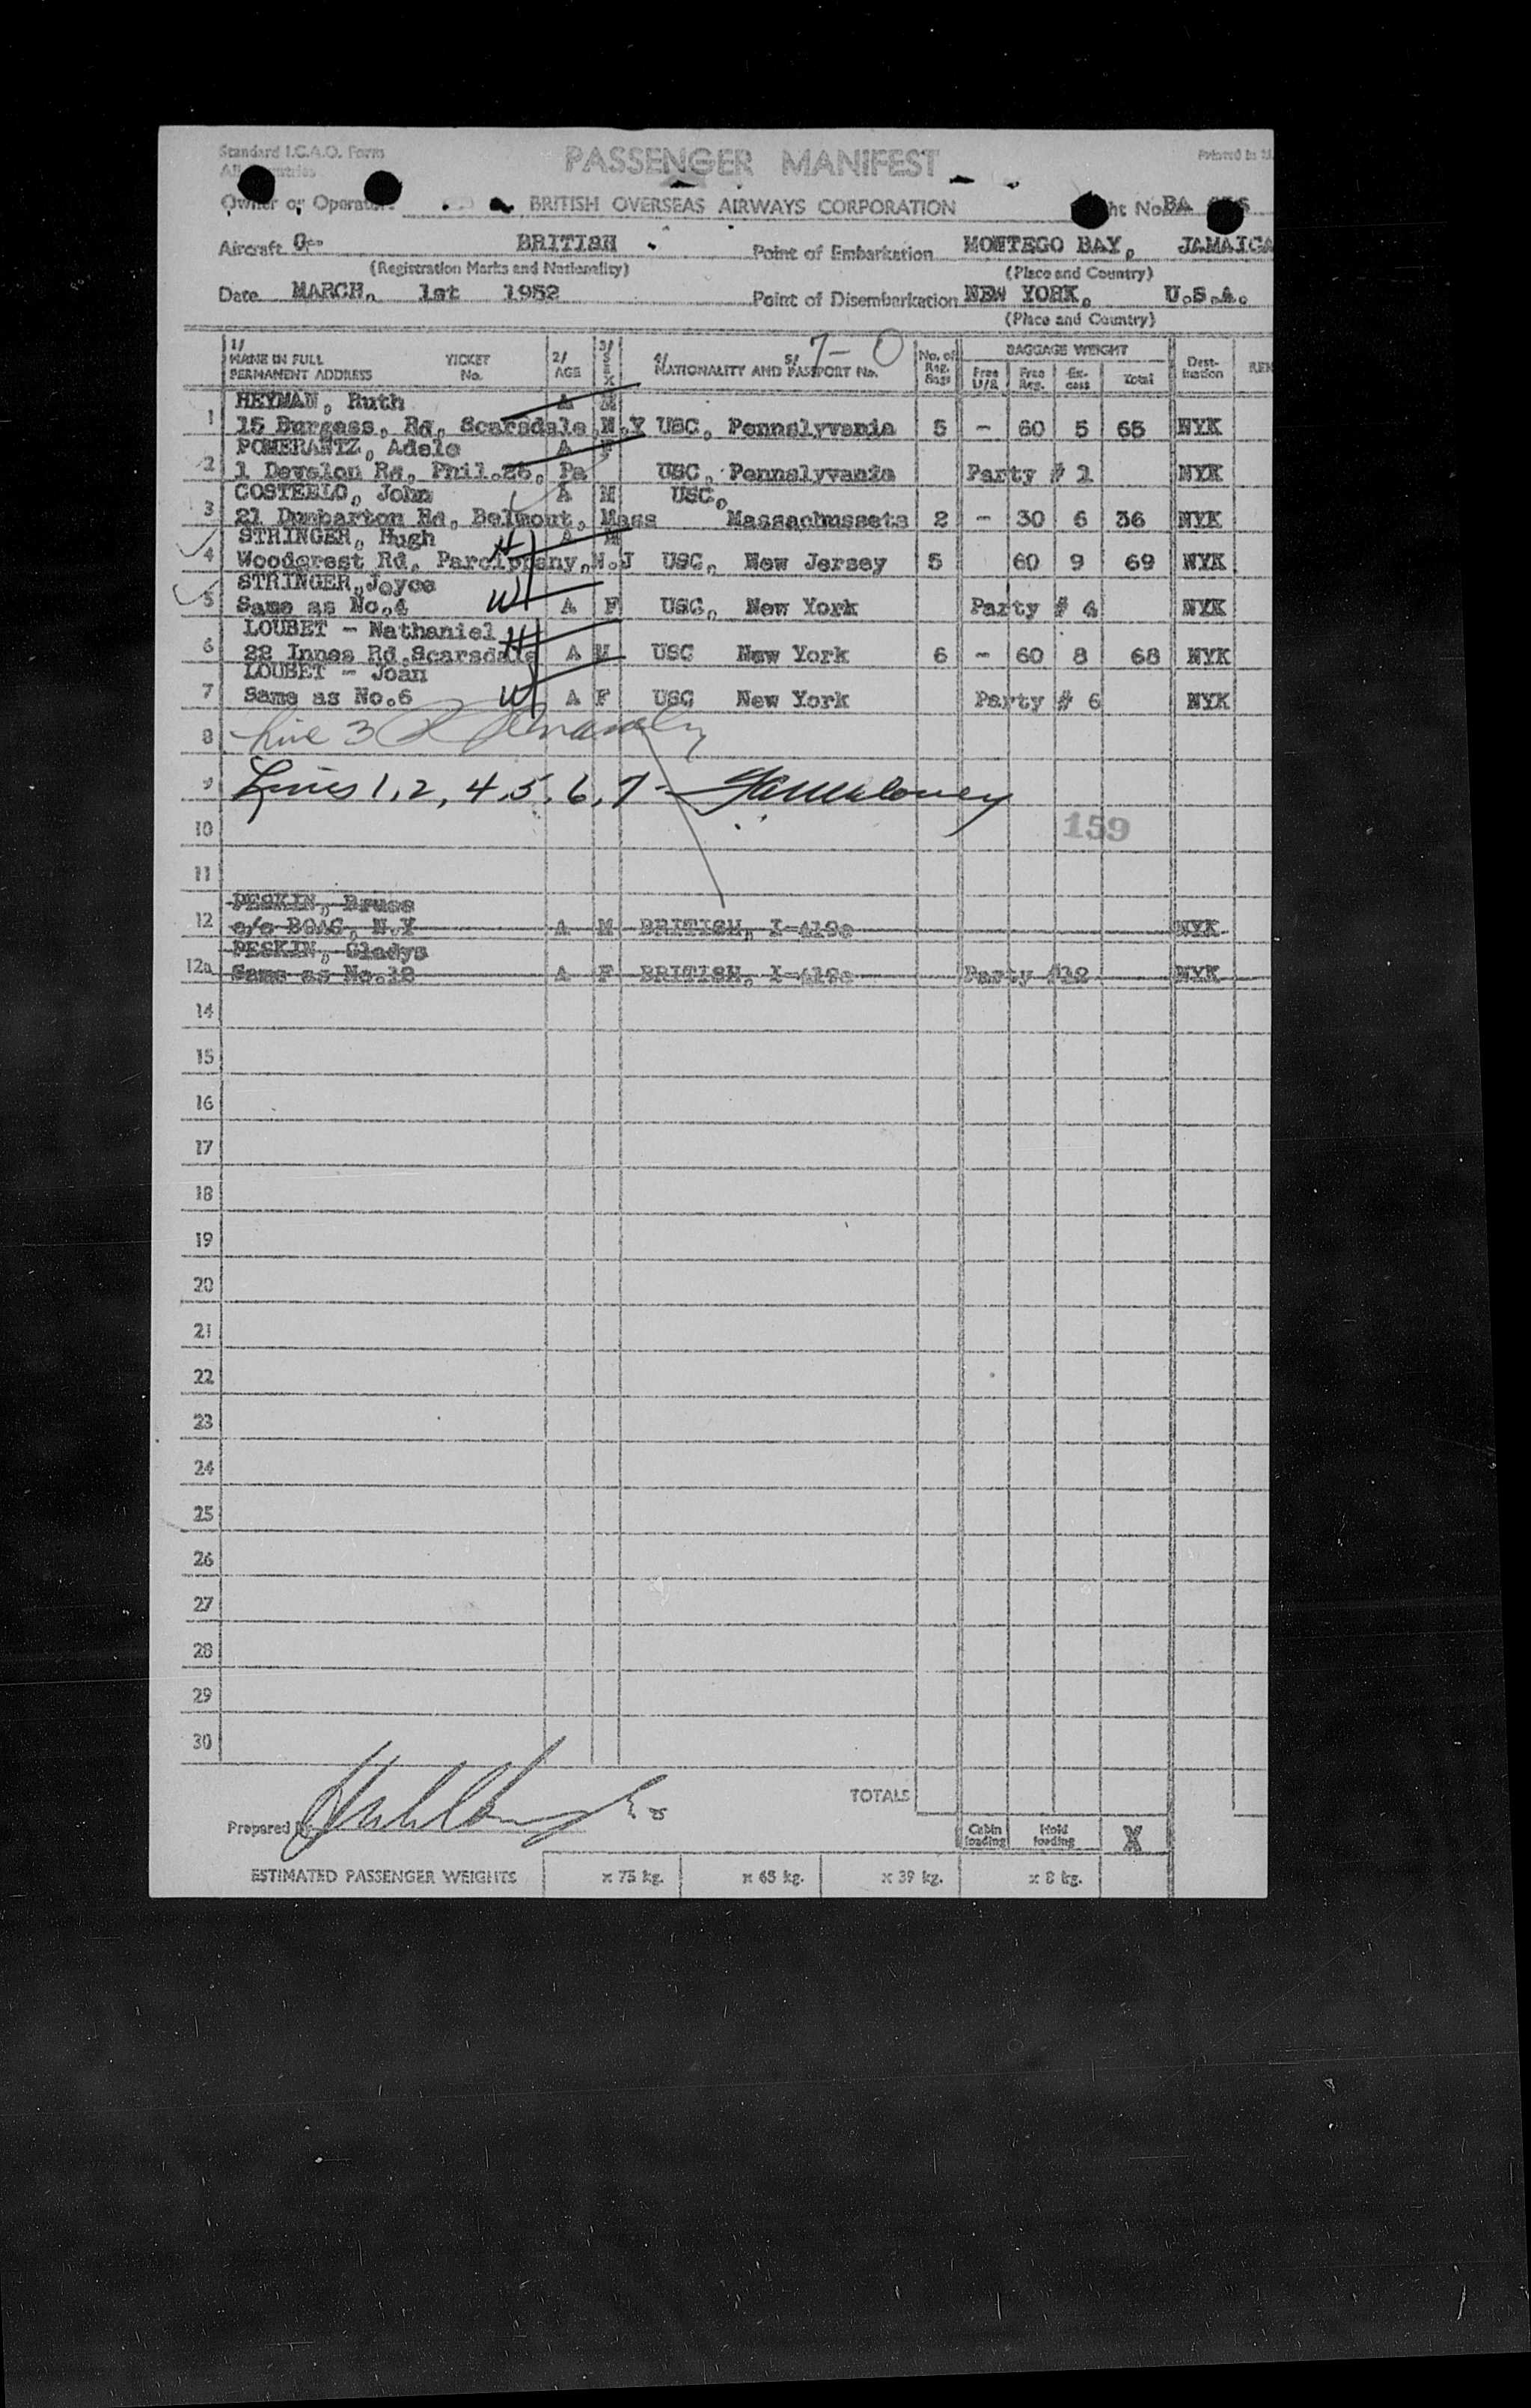 Standard I.C.A.O. Form
PASSENGER MANIFEST
Printed in
All
Owner or Operator
BRITISH OVERSEAS AIRWAYS CORPORATION
ht No. BA
Aircraft G-- BRITISH Point of Embarkation MONTEGO BAY, JAMAICA
(Registration Marks and Nationality) (Place and Country)
Date MARCH, 1st 1952 Point of Disembarkation NEW YORK, U.S.A.
(Place and Country)
7-0
1/ NAME IN FULL PERMANENT ADDRESS TICKET No. 2/ AGE 3/ SEX 4/ NATIONALITY AND 5/ PASSPORT No. No. of Reg. Bags BAGGAGE WEIGHT Free U/R Free Reg. Ex-cess Total Dest-ination REM
HEYMAN, Ruth A M
1 15 Burgess, Rd, Scarsdale N.Y USC, Pennslyvania 5 - 60 5 65 NYK
POMERANTZ, Adele A F
2 1 Devalon Rd, Phil.26, Pa USC, Pennslyvania Party # 1 NYK
COSTEELO, John A M USC,
3 21 Dumbarton Rd, Belmout, Mass Massachussets 2 - 30 6 36 NYK
STRINGER, Hugh H A M
4 Woodcrest Rd, Parcippany, N.J USC, New Jersey 5 60 9 69 NYK
STRINGER, Joyce
5 Same as No.4 W A F USC, New York Party # 4 NYK
LOUBET - Nathaniel H
6 22 Innes Rd, Scarsdale A M USC New York 6 - 60 8 68 NYK
LOUBET - Joan
7 Same as No.6 W A F USC New York Party # 6 NYK
8 Line 3
9 Lines 1, 2, 4, 5, 6, 7 -
10 159
11
PESKIN, Bruce
12 c/o BOAC, N.Y A M BRITISH, I-419s NYK
PESKIN, Gladys
12a Same as No.12 A F BRITISH, I-419s Party #12 NYK
14
15
16
17
18
19
20
21
22
23
24
25
26
27
28
29
30
TOTALS
Prepared by
Cabin loading Hold loading X
ESTIMATED PASSENGER WEIGHTS x 75 kg. x 65 kg. x 39 kg. x 8 kg.